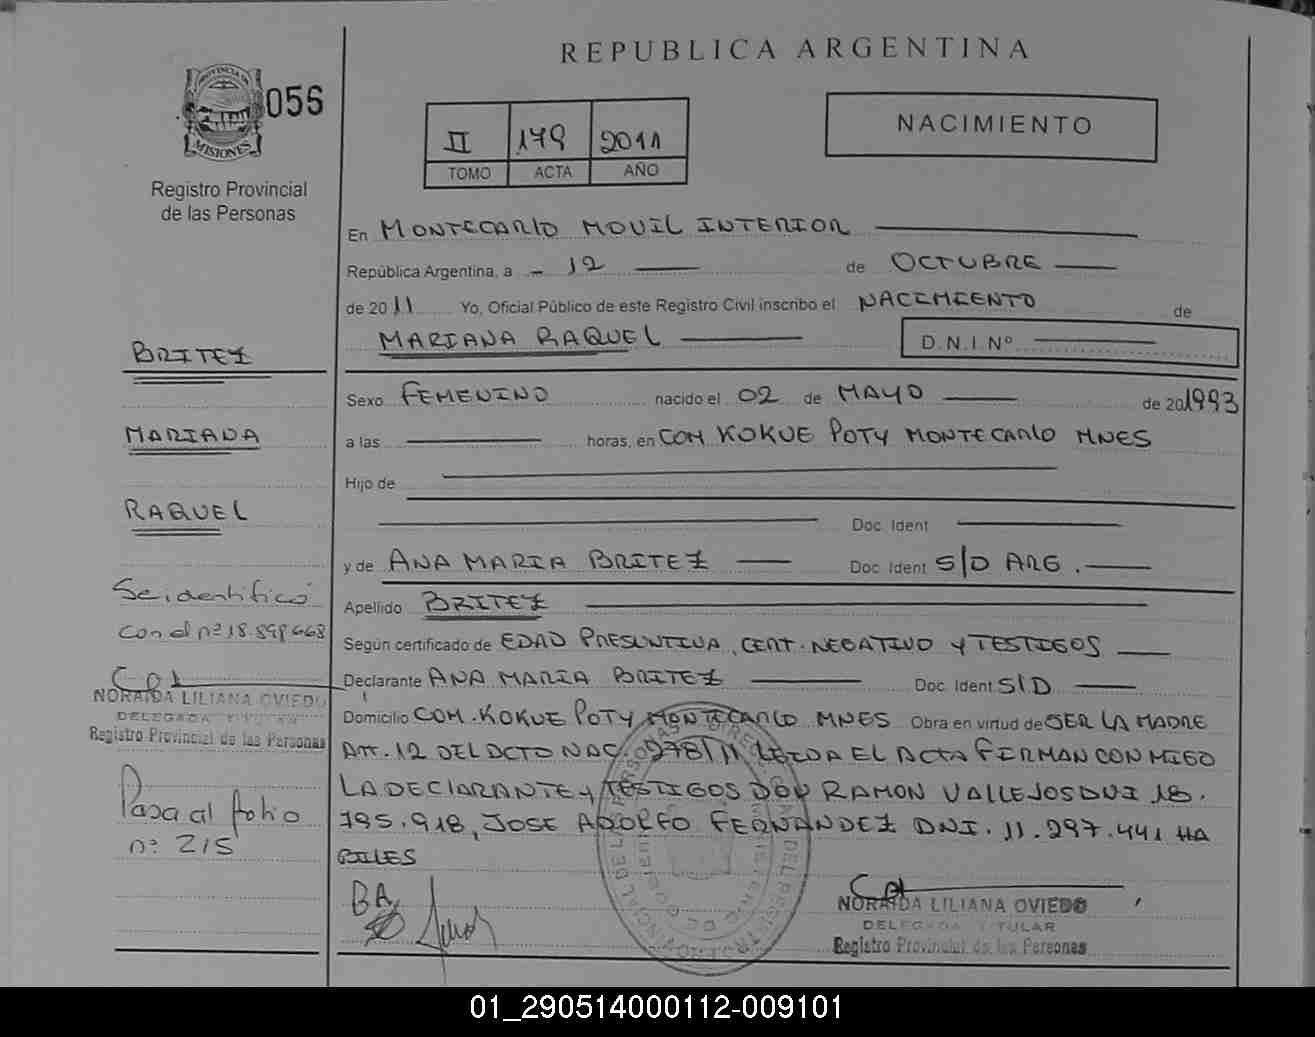 REPUBLICA ARGENTINA
PROVINCIA DE
MISIONES
056
Registro Provincial
de las Personas
II 179 2011
TOMO ACTA AÑO
NACIMIENTO
En MONTECARLO MOVIL INTERIOR
República Argentina, a - 12 de OCTUBRE
de 2011 Yo, Oficial Público de este Registro Civil inscribo el NACIMIENTO de
MARIANA RAQUEL D.N.I. Nº
BRITEZ
Sexo FEMENINO nacido el 02 de MAYO de 201993
MARIANA
a las horas, en COM KOKUE POTY MONTECARLO MNES
Hijo de
RAQUEL
Doc. Ident
y de ANA MARIA BRITEZ Doc. Ident S/D ARG.
Apellido BRITEZ
Se identificó
con el nº 18.898668
Según certificado de EDAD PRESUNTIVA, CERT. NEGATIVO Y TESTIGOS
Declarante ANA MARIA BRITEZ Doc. Ident S/D
NORAIDA LILIANA OVIEDO
DELEGADA TITULAR
Registro Provincial de las Personas
Domicilio COM. KOKUE POTY MONTECARLO MNES Obra en virtud de SER LA MADRE
ART. 12 DEL DCTO NAC. 278/11 LEIDA EL ACTA FIRMAN CONMIGO
LA DECLARANTE Y TESTIGOS DON RAMON VALLEJOS DNI 18.
795.918, JOSE ADOLFO FERNANDEZ DNI. 11.297.441 HA
BILES
Pasa al folio
nº 215
BA
NORAIDA LILIANA OVIEDO
DELEGADA TITULAR
Registro Provincial de las Personas
01_290514000112-009101